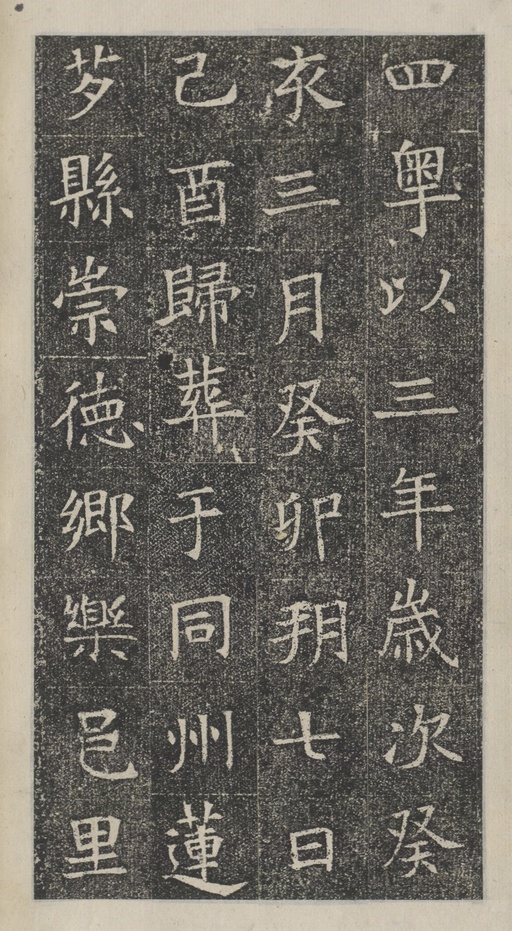 四粤以三年歲次癸
亥三月癸卯朔七日
己酉歸葬于同州蓮
芗縣崇德鄉樂邑里